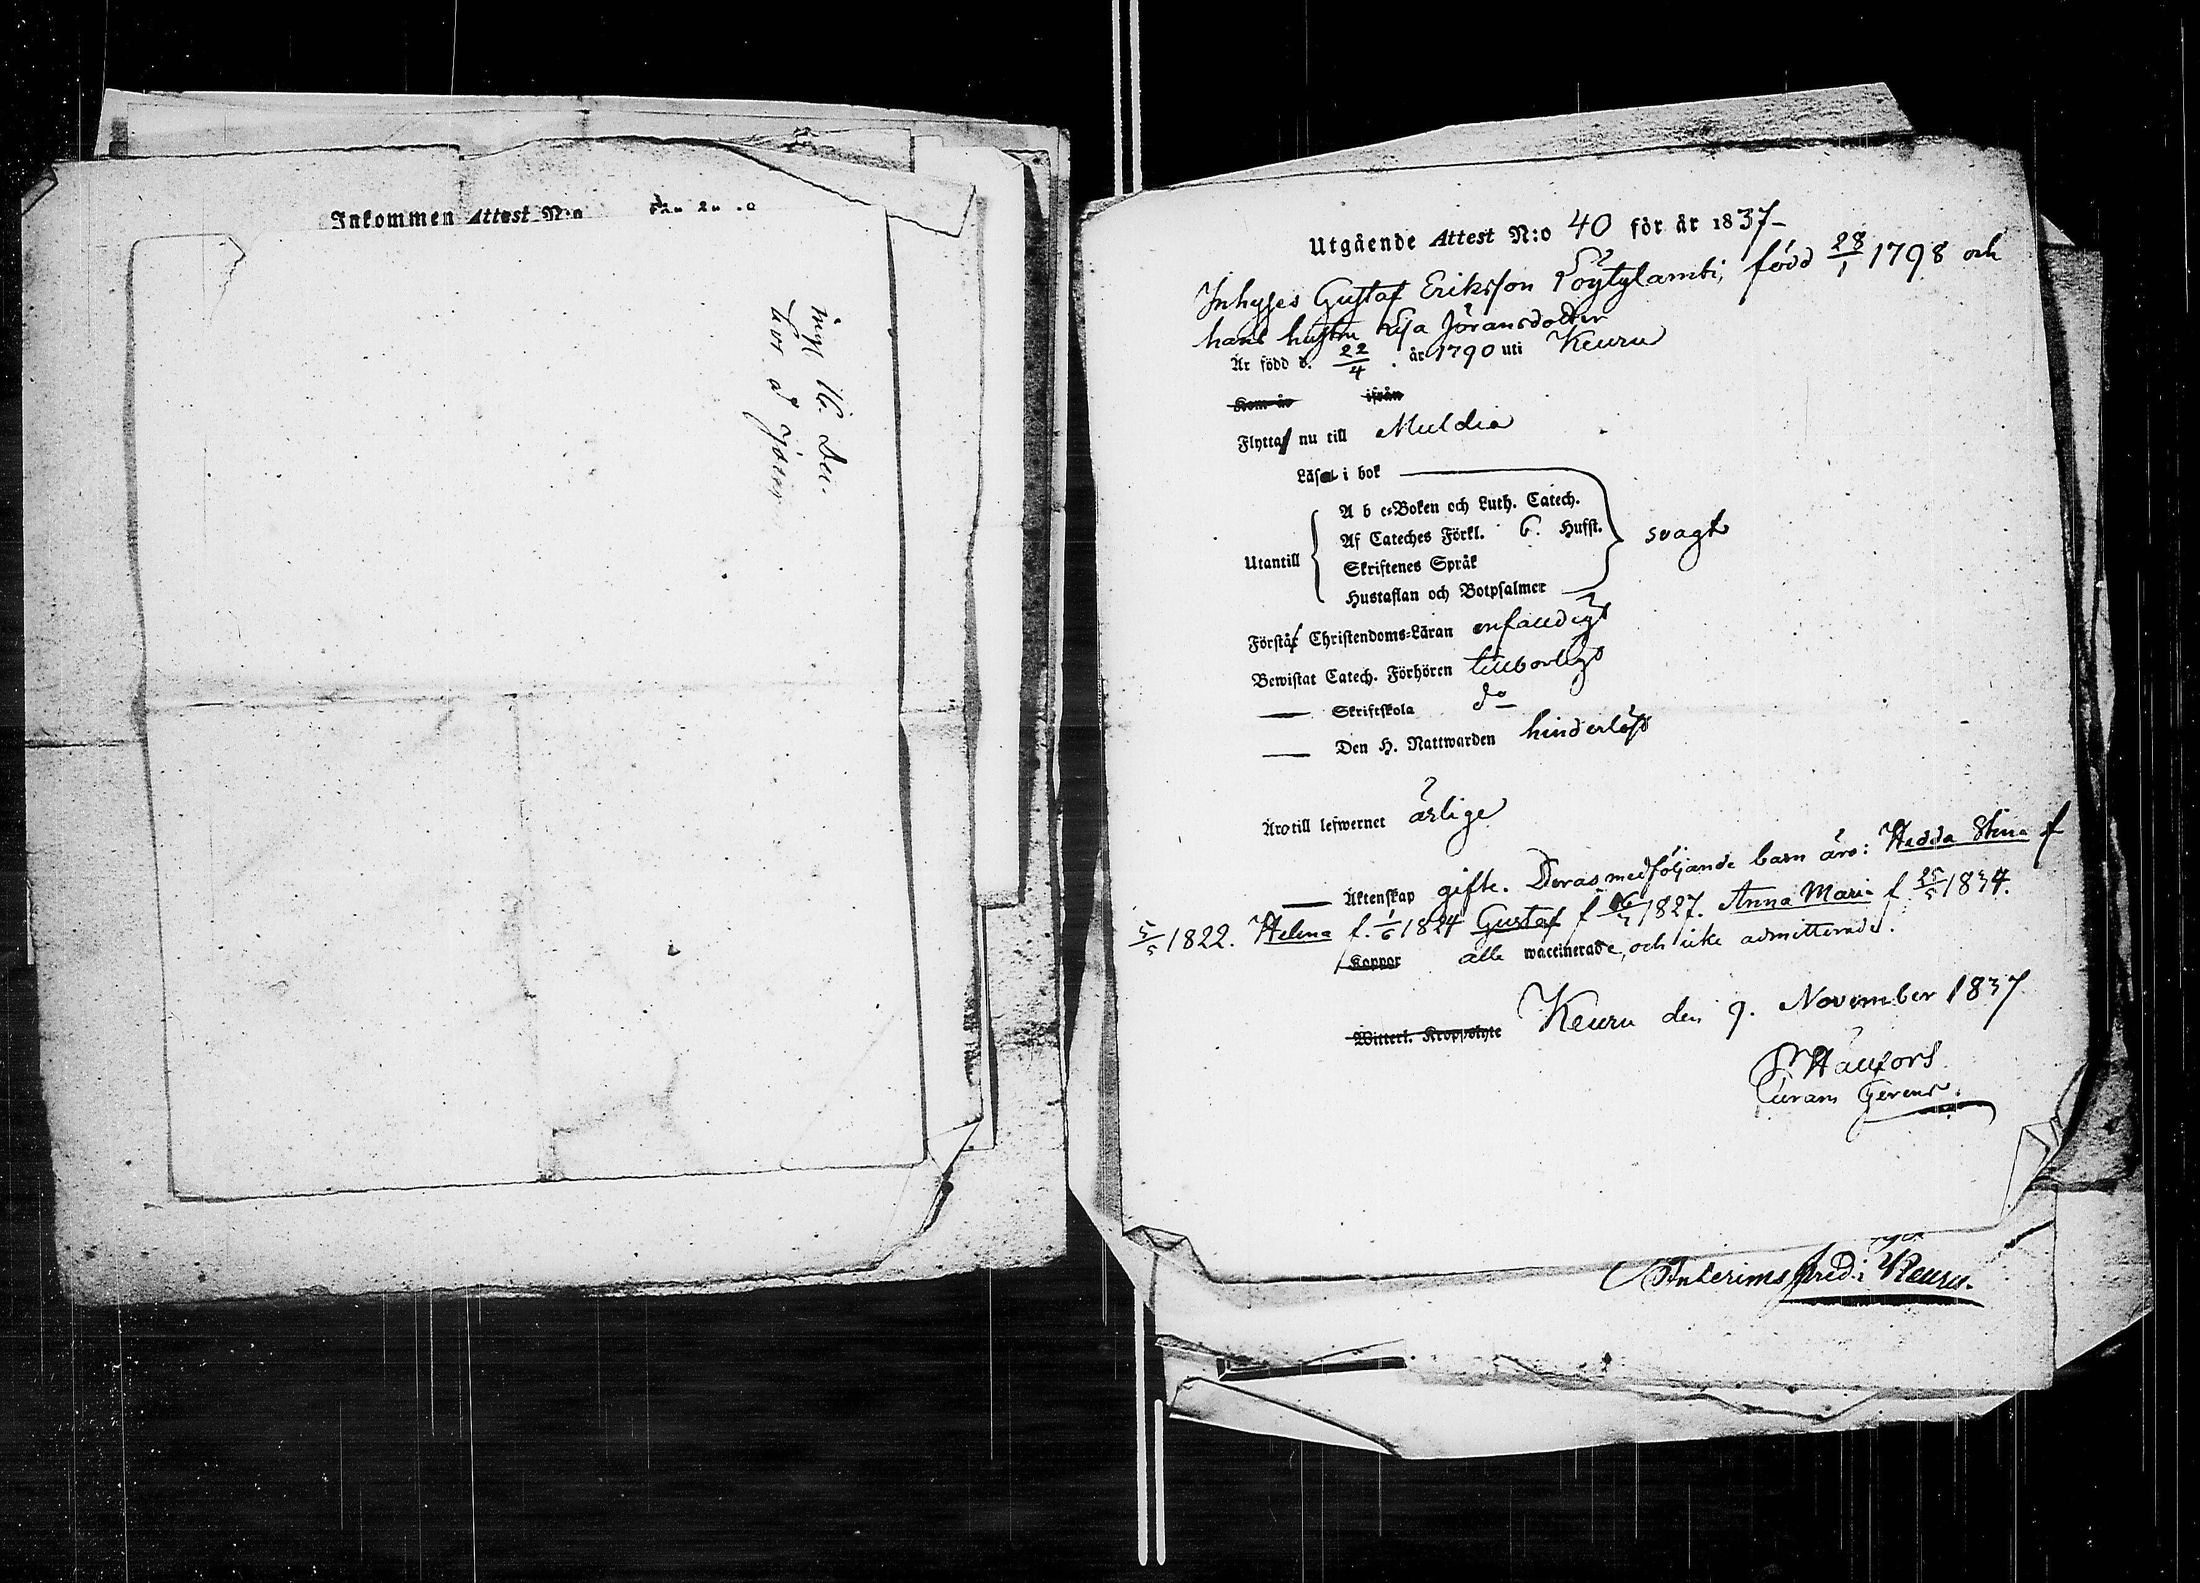 Inkommen Attest N:o
ingl 16. Dec.
Utgående Attest N:o 40 för år 1837
Inhyses Gustaf Eriksson Pöytylambi, född 28/1 1798 och
hans hustru Jöransdotter
Är född d. 22/4 . år 1790 uti Keuru
Kom år ifrån
Flytta nu till Muldia
Läsa i bok
A b c-Boken och Luth. Catech.
Af Cateches Förkl. 6. Hufst.
svagt
Utantill
Skriftenes Språk
Hustaflan och Botpsalmer
Förstår Christendoms-Läran enfaldigt
Bewistat Catech. Förhören tillbörligt
— Skriftskola do
— Den H. Nattwarden hinderlöst
Äro till lefwernet ärlige
— Äktenskap gifte. Deras medföljande barn äro: Hedda Stina f
5/5 1822. Helena f. 1/6 1824 Gustaf f 1827. Anna Maria f. 25/5 1834.
Koppor alle waccinerade, och icke admitterade.
Witterl. Kroppslyte Keuru den 9. November 1837
Hällfors
Curam Gerens.
Interims pred. i Keuru.